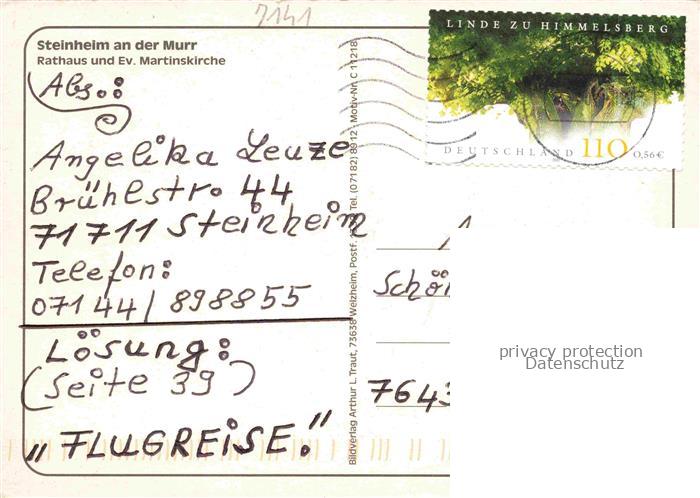 7141
Steinheim an der Murr
Rathaus und Ev. Martinskirche
Abs.:
Angelika Leuze
Brühlstr. 44
71711 Steinheim
Telefon:
07144/898855
Lösung:
(Seite 39)
„FLUGREISE."
Bildverlag Arthur L. Traut, 73638 Welzheim, Postf. Tel. (07182) 8912 · Motiv-Nr. C 11218
LINDE ZU HIMMELSBERG
DEUTSCHLAND 110 0,56€
Schön
7643
privacy protection
Datenschutz